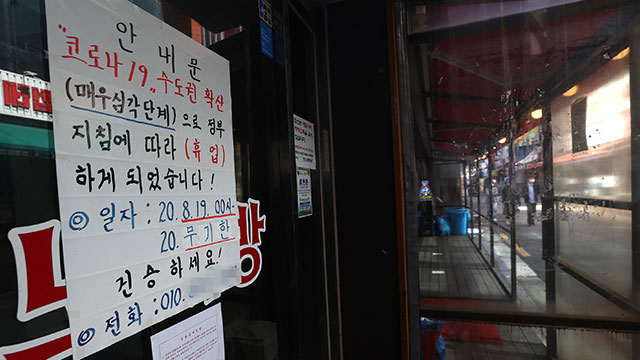 안 내 문
"코로나 19" 수도권 확산
(매우심각단계)으로 정부
지침에 따라 (휴 업)
하게 되었습니다!
◎ 일자 : 20. 8. 19. 00시~
20. 무기한
건승하세요!
◎ 전화 : 010.
방